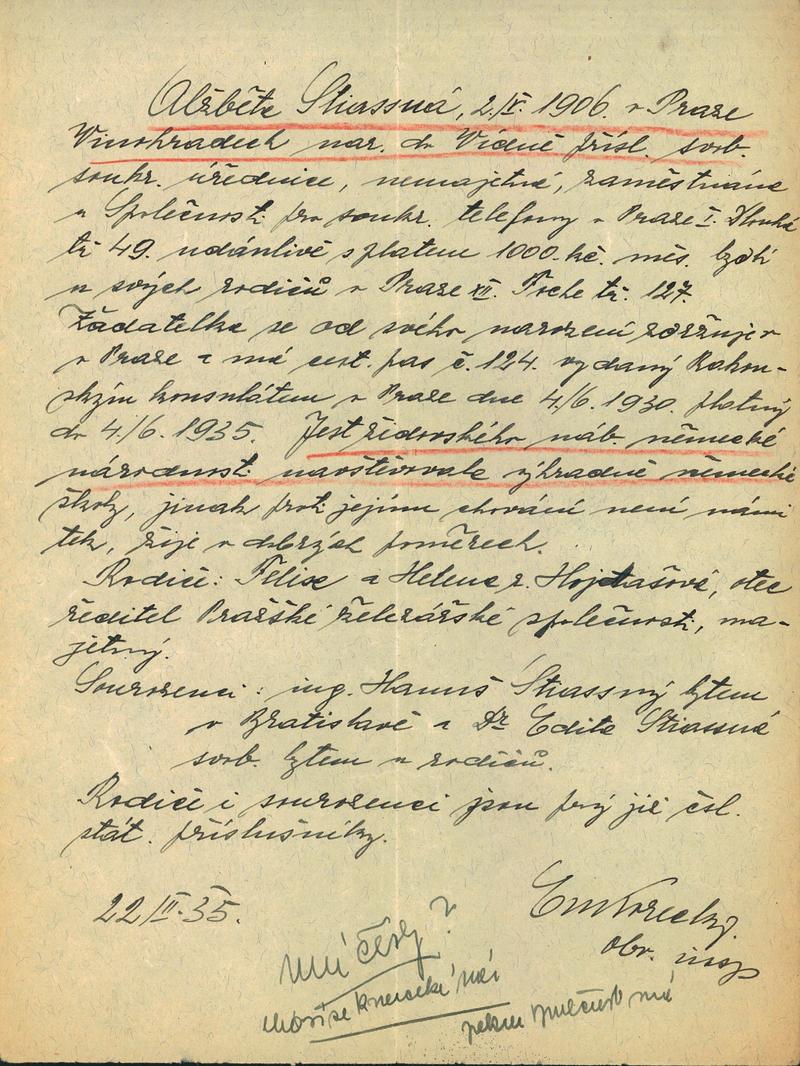 Alžběta Stiassná, 2./V. 1906. v Praze
Vinohradech nar. do Vídně přísl. svob.
soukr. úřednice, nemajetná, zaměstnána
u Společnosti pro soukr. telefony v Praze I. Dlouhá
tř. 49. udánlivě s platem 1000.kč. měs. bydlí
u svých rodičů v Praze XII. Foche tř. 127.
Žadatelka se od svého narození zdržuje
v Praze a má cest. pas č. 124. vydaný Rakou-
ským konsulátem v Praze dne 4./6. 1930. platný
do 4./6. 1935. Jest židovského náb. německé
národnosti navštěvovala výhradně německé
školy, jinak proti jejímu chování není námi
tek, žije v dobrých poměrech.
Rodiče: Felix a Helena r. Hojtašová, otec
ředitel Pražské železářské společnosti, ma-
jetný.
Sourozenci: ing. Hanuš Stiassný bytem
v Bratislavě a Dr Edita Stiassná
svob. bytem u rodičů.
Rodiče i sourozenci jsou prý již čsl.
stát. příslušníky.
22/II.35.
obv. insp
umí česky?
chová se
má